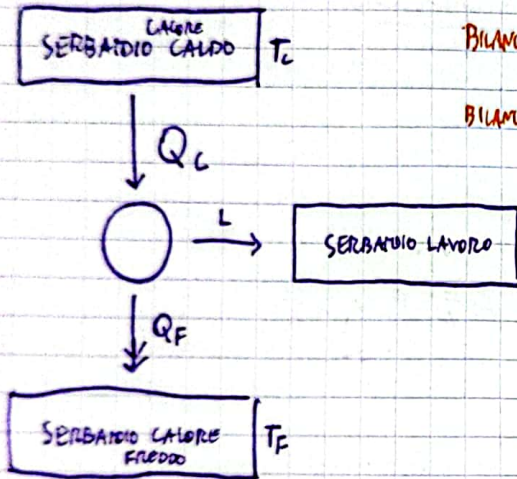 CALORE
SERBATOIO CALDO
T_C
BILAN
Q_C
BILAN
L
SERBATOIO LAVORO
Q_F
SERBATOIO CALORE
FREDDO
T_F